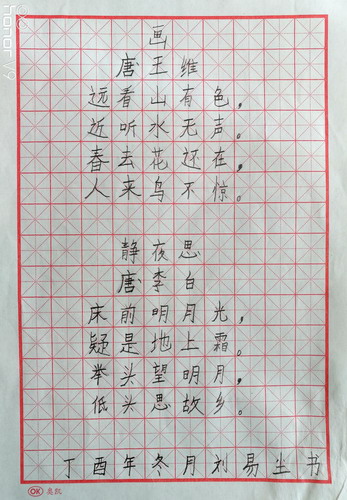 画
唐王维
远看山有色，
近听水无声。
春去花还在，
人来鸟不惊。
静夜思
唐李白
床前明月光，
疑是地上霜。
举头望明月，
低头思故乡。
丁酉年冬月刘易尘书
OK
honor V9